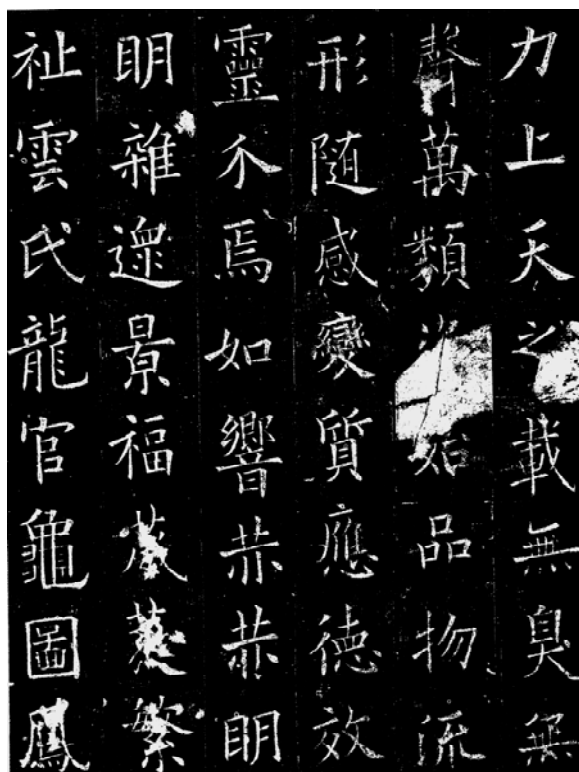 力上天之載無臭無
聲萬類始品物流
形隨感變質應德效
靈介焉如響赫赫眀
眀雜遝景福葳蕤繁
祉雲氏龍官龜圖鳳